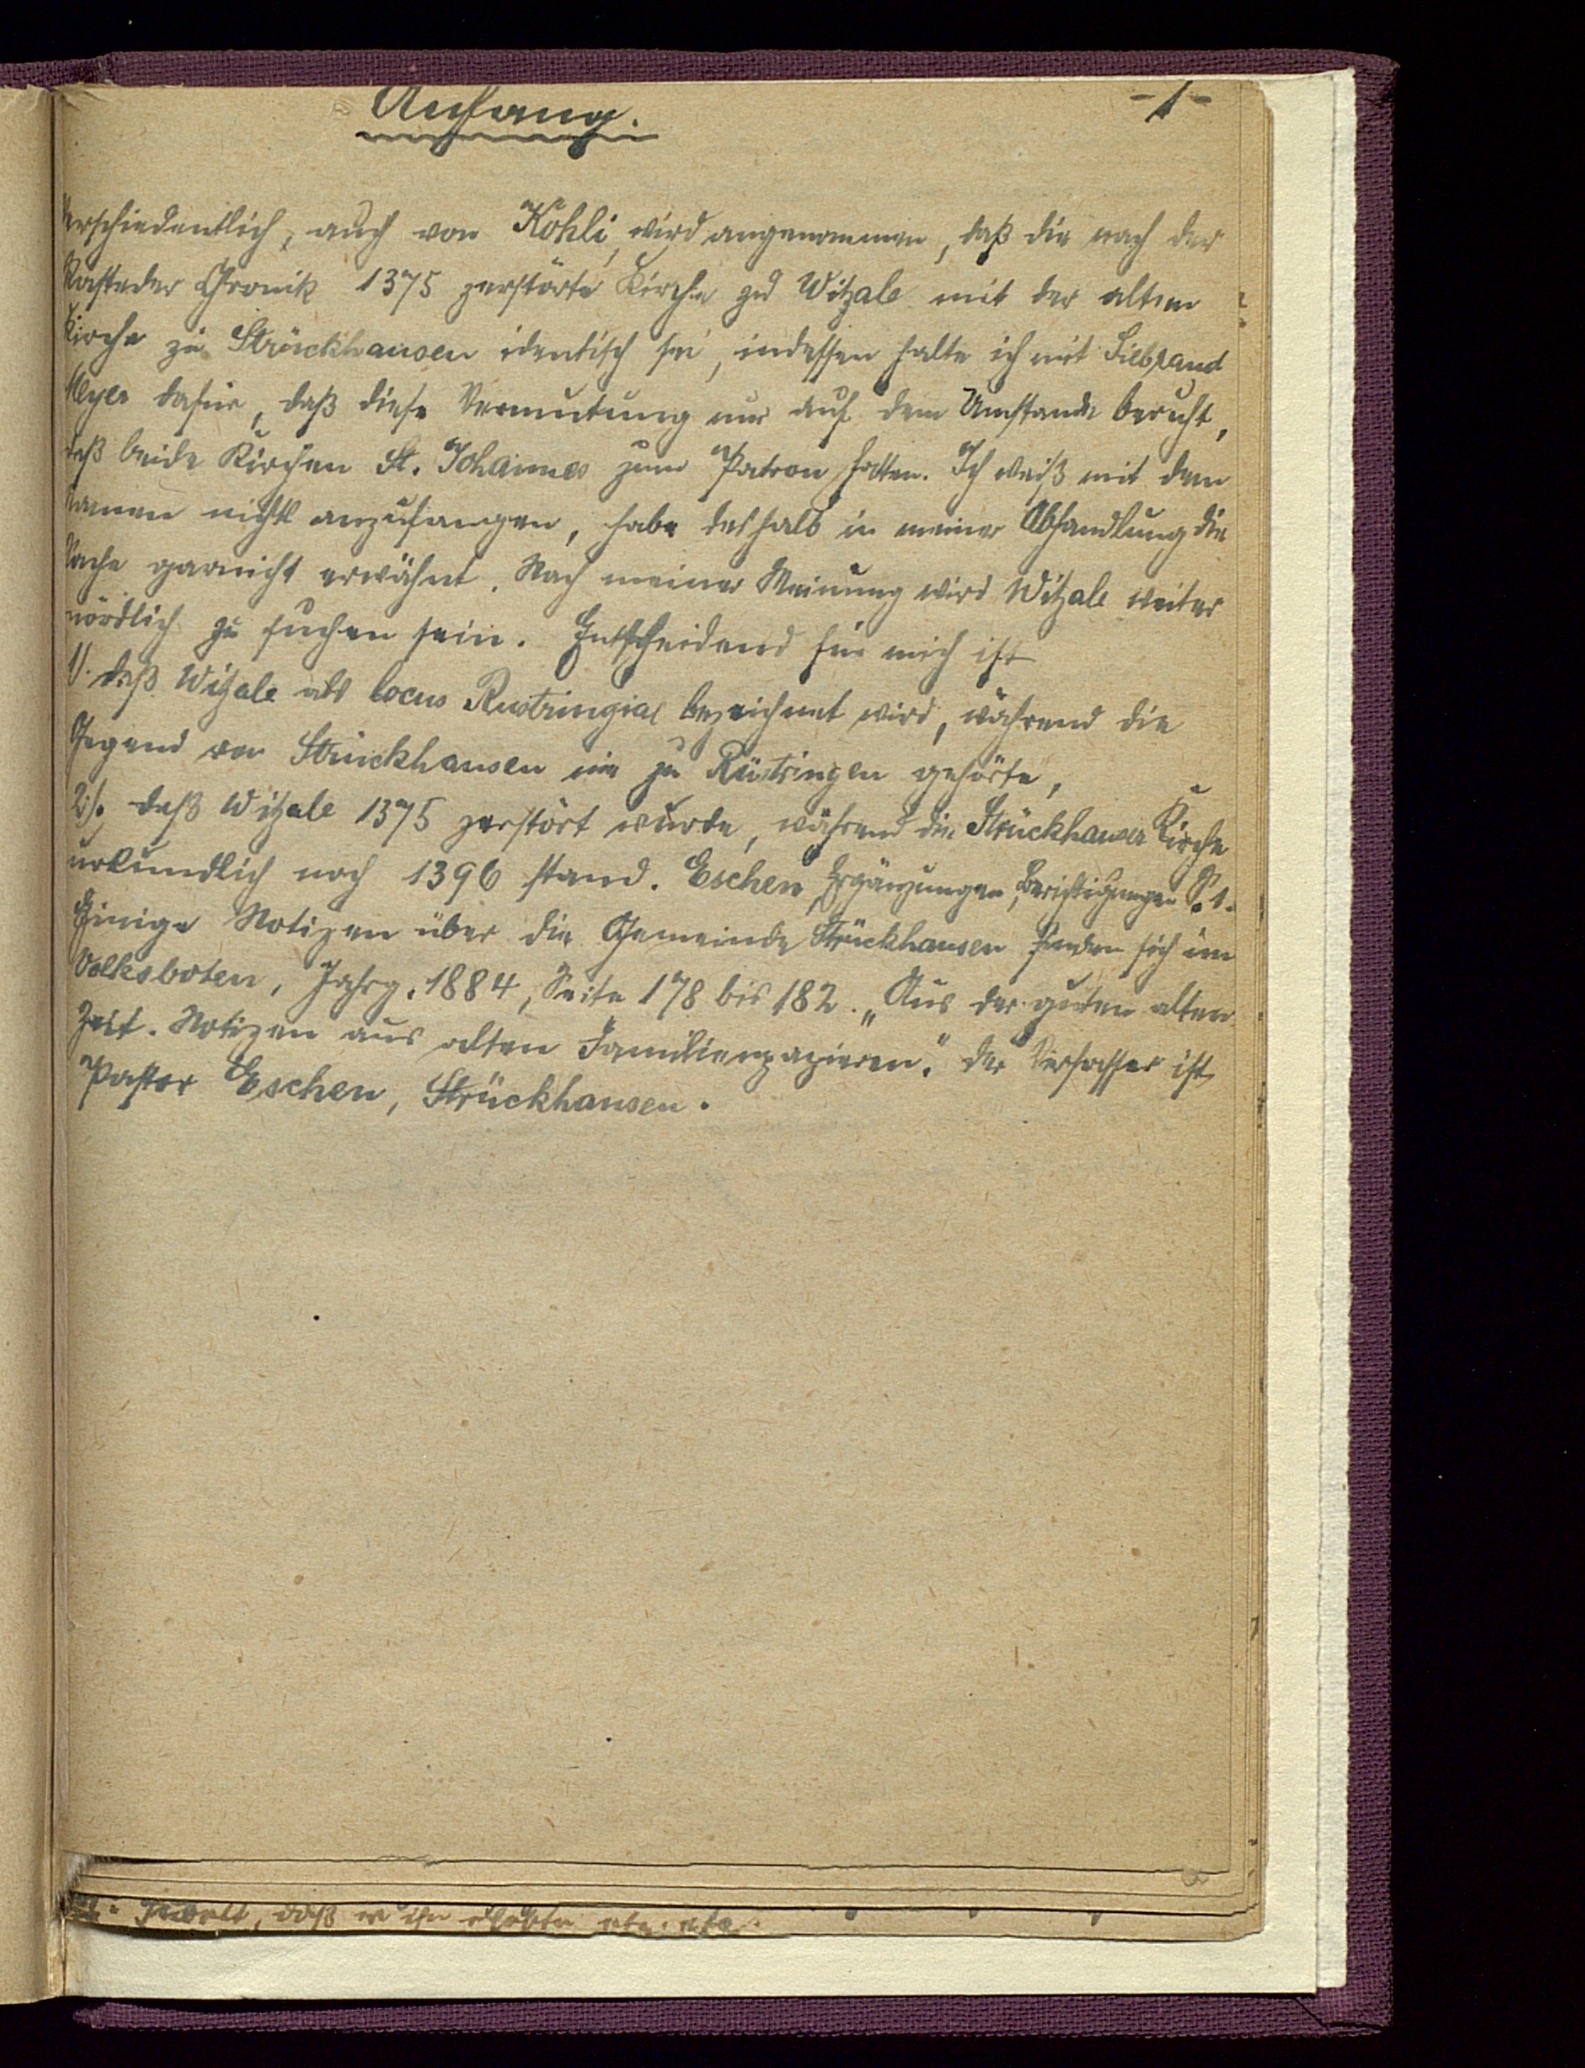 Anhang.
-1-
Verschiedentlich, auch von Kohli, wird angenommen, daß die nach der
Rasteder Chronik 1375 zerstörte Kirche zu Witzale mit der alten
Kirche zu Strückhausen identisch sei, indessen halte ich mit
Meyer dafür, daß diese Vermutung nur auf dem Umstande beruht,
daß beide Kirchen St. Johannes zum Patron hatten. Ich weiß mit dem
Namen nichts anzufangen, habe deshalb in meiner Abhandlung die
Sache garnicht erwähnt. Nach meiner Meinung wird Witzale weiter
nördlich zu suchen sein. Entscheidend für mich ist
1). daß Witzale als locus Rustringiae bezeichnet wird, während die
Gegend von Strückhausen nie zu Rüstringen gehörte,
2). daß Witzale 1375 zerstört wurde, während die Strückhauser Kirche
urkundlich noch 1396 stand. Eschen, Ergänzungen, Berichtigungen S. 1.
Einige Notizen über die Gemeinde Strückhausen finden sich im
Volksboten, Jahrg. 1884, Seite 178 bis 182. „Aus der guten alten
Zeit. Notizen aus alten Familienpapieren." Der Verfasser ist
Pastor Eschen, Strückhausen.
daß er ihn etc. etc.